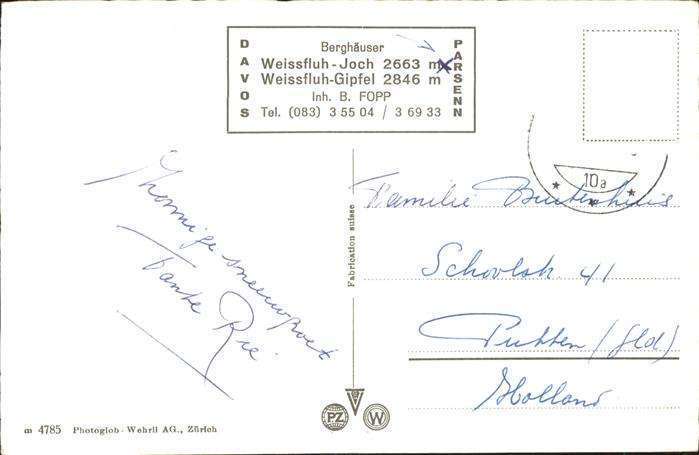 DAVOS
Berghäuser
Weissfluh-Joch 2663 m
Weissfluh-Gipfel 2846 m
Inh. B. FOPP
Tel. (083) 3 55 04 / 3 69 33
PARSENN
10a
Zonnige sneeuwpret
Tante Rie
Fabrication suisse
Familie Buitenhuis
Schoolstr 41
Putten (Gld)
Holland
PZ
W
m 4785 Photoglob-Wehrli AG., Zürich